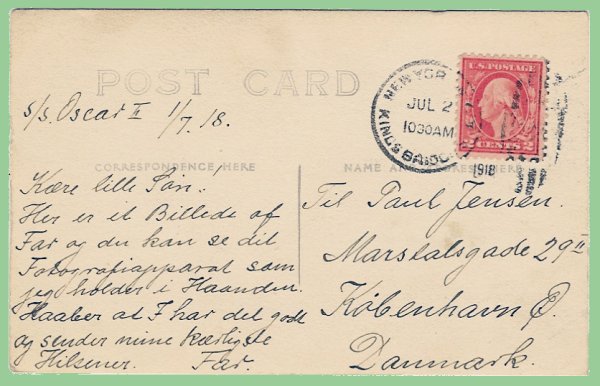 POST CARD
s/s. Oscar II 1/7. 18.
NEW YOR
JUL 2
1030AM
KINGSBRIDGE
1918
U.S. POSTAGE
2 CENTS 2
CORRESPONDENCE HERE
NAME AND ADDRESS HERE
Kære lille Søn!
Her er et Billede af
Far og du kan se dit
Fotografiapparat som
jeg holder i Haanden.
Haaber at I har det godt
og sender mine kærligste
Hilsener. Far.
Til Paul Jensen.
Marstalsgade 29II
København Ø.
Danmark.